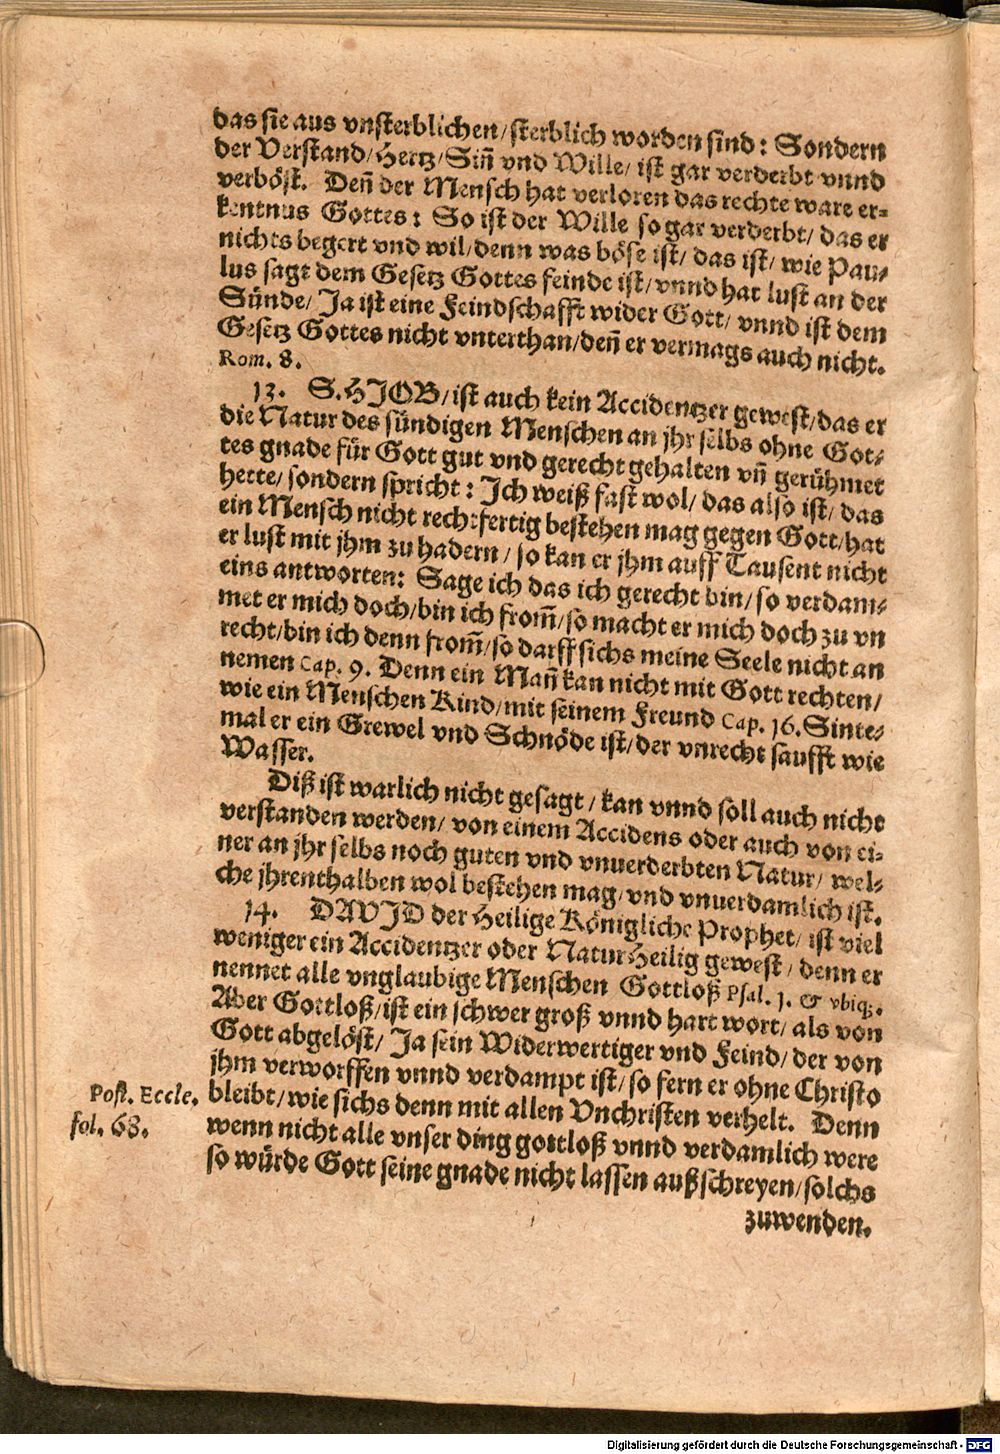 das sie aus vnsterblichen/ sterblich worden sind: Sondern
der Verstand/ Hertz/ Siñ vnd Wille/ ist gar verderbt vnnd
verböst. Deñ der Mensch hat verloren das rechte ware er-
kentnus Gottes: So ist der Wille so gar verderbt/ das er
nichts begert vnd wil/ denn was böse ist/ das ist/ wie Pau-
lus sagt dem Gesetz Gottes feinde ist/ vnnd hat lust an der
Sünde/ Ja ist eine Feindschafft wider Gott/ vnnd ist dem
Gesetz Gottes nicht vnterthan/ deñ er vermags auch nicht.
Rom. 8.
13. S. HJOB/ ist auch kein Accidentzer gewest/ das er
die Natur des sündigen Menschen an jhr selbs ohne Got-
tes gnade für Gott gut vnd gerecht gehalten vñ gerühmet
hette/ sondern spricht: Ich weiß fast wol/ das also ist/ das
ein Mensch nicht rechtfertig bestehen mag gegen Gott/ hat
er lust mit jhm zu hadern/ so kan er jhm auff Tausent nicht
eins antworten: Sage ich das ich gerecht bin/ so verdam-
met er mich doch/ bin ich from̃/ so macht er mich doch zu vn
recht/ bin ich denn from̃/ so darff sichs meine Seele nicht an
nemen Cap. 9. Denn ein Mañ kan nicht mit Gott rechten/
wie ein Menschen Kind/ mit seinem Freund Cap. 16. Sinte-
mal er ein Grewel vnd Schnöde ist/ der vnrecht saufft wie
Wasser.
Diß ist warlich nicht gesagt/ kan vnnd soll auch nicht
verstanden werden/ von einem Accidens oder auch von ei-
ner an jhr selbs noch guten vnd vnuerderbten Natur/ wel-
che jhrenthalben wol bestehen mag/ vnd vnuerdamlich ist.
14. DAVJD der Heilige Königliche Prophet/ ist viel
weniger ein Accidentzer oder NaturHeilig gewest/ denn er
nennet alle vnglaubige Menschen Gottloß Psal. 1. & vbiq;.
Aber Gottloß/ ist ein schwer groß vnnd hart wort/ als von
Gott abgelöst/ Ja sein Widerwertiger vnd Feind/ der von
jhm verworffen vnnd verdampt ist/ so fern er ohne Christo
bleibt/ wie sichs denn mit allen Vnchristen verhelt. Denn
Post. Eccle.
fol. 68.
wenn nicht alle vnser ding gottloß vnnd verdamlich were
so würde Gott seine gnade nicht lassen außschreyen/ solchs
zuwenden.
Digitalisierung gefördert durch die Deutsche Forschungsgemeinschaft - DFG